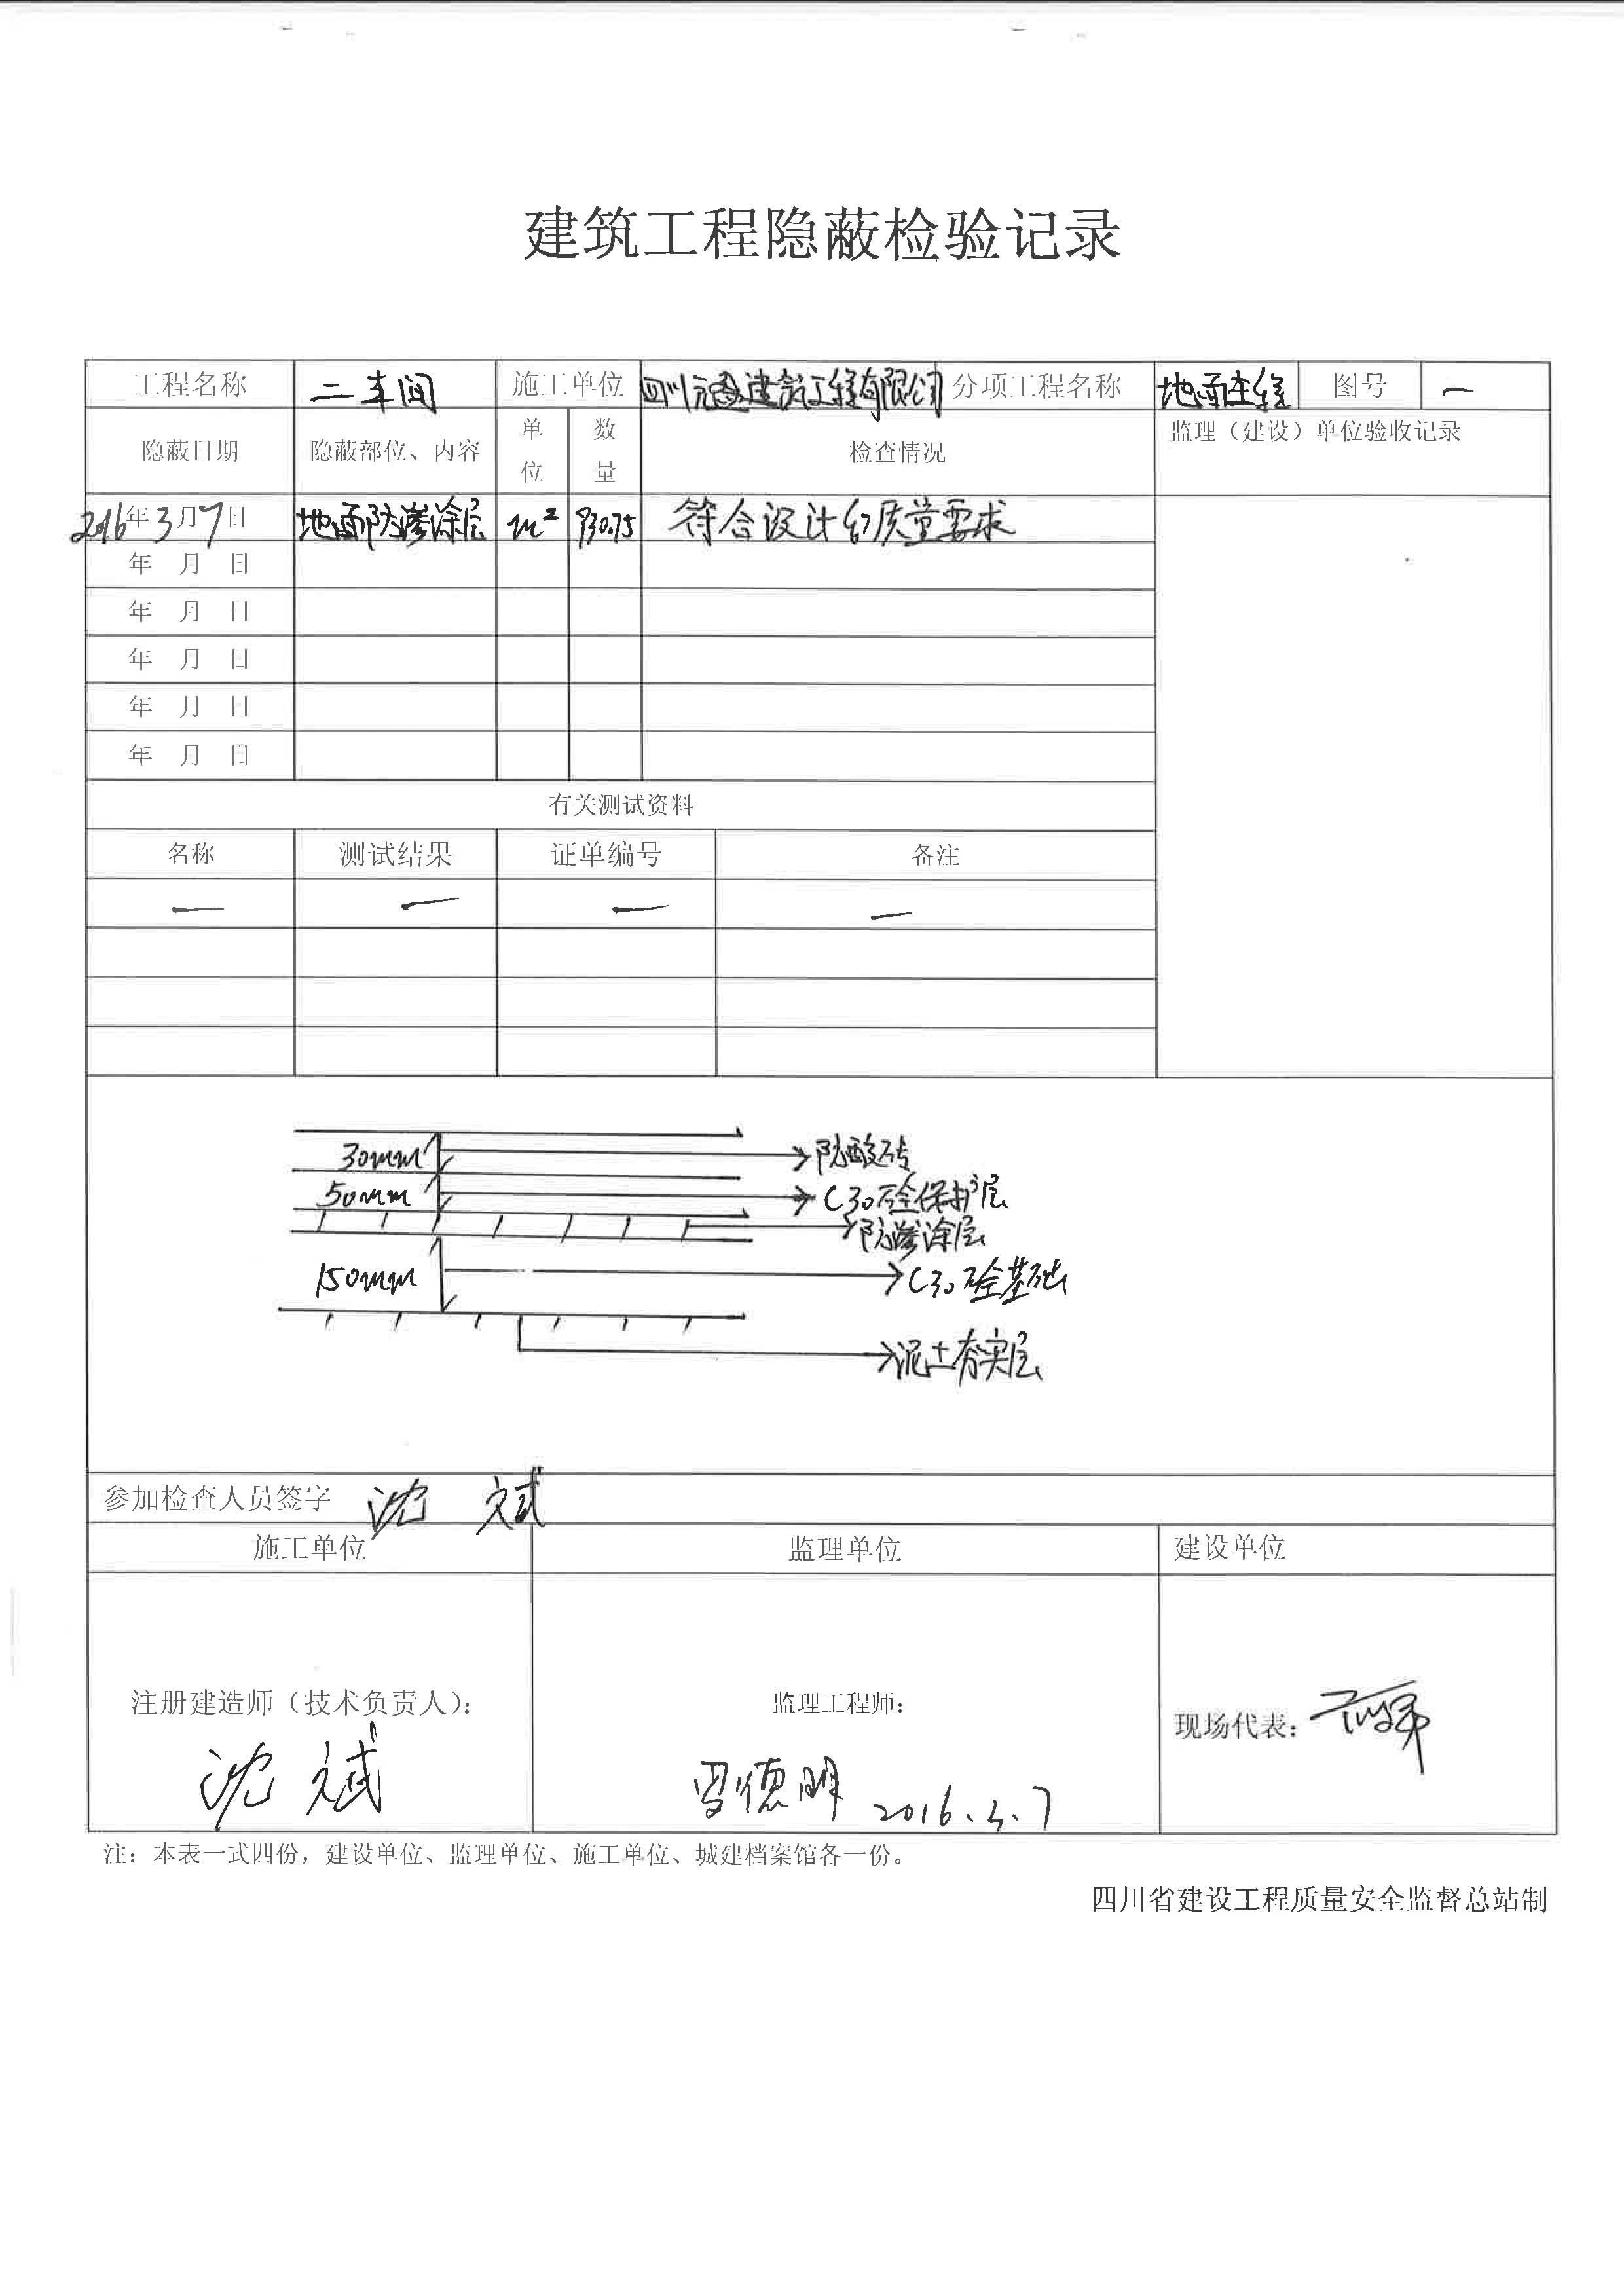 建筑工程隐蔽检验记录
工程名称 二车间 施工单位 四川元通建筑工程有限公司 分项工程名称 地面工程 图号 一
隐蔽日期 隐蔽部位、内容 单位 数量 检查情况 监理（建设）单位验收记录
2016年3月7日 地面防渗涂层 m² 930.75 符合设计 质量要求
年 月 日
年 月 日
年 月 日
年 月 日
年 月 日
有关测试资料
名称 测试结果 证单编号 备注
一 一 一 一
30mm 防酸砖
50mm C30砼保护层
防渗涂层
150mm C30砼基础
泥土夯实层
参加检查人员签字 沈斌
施工单位 监理单位 建设单位
注册建造师（技术负责人）： 监理工程师： 现场代表：
沈斌 罗德明 2016.3.7
注：本表一式四份，建设单位、监理单位、施工单位、城建档案馆各一份。
四川省建设工程质量安全监督总站制